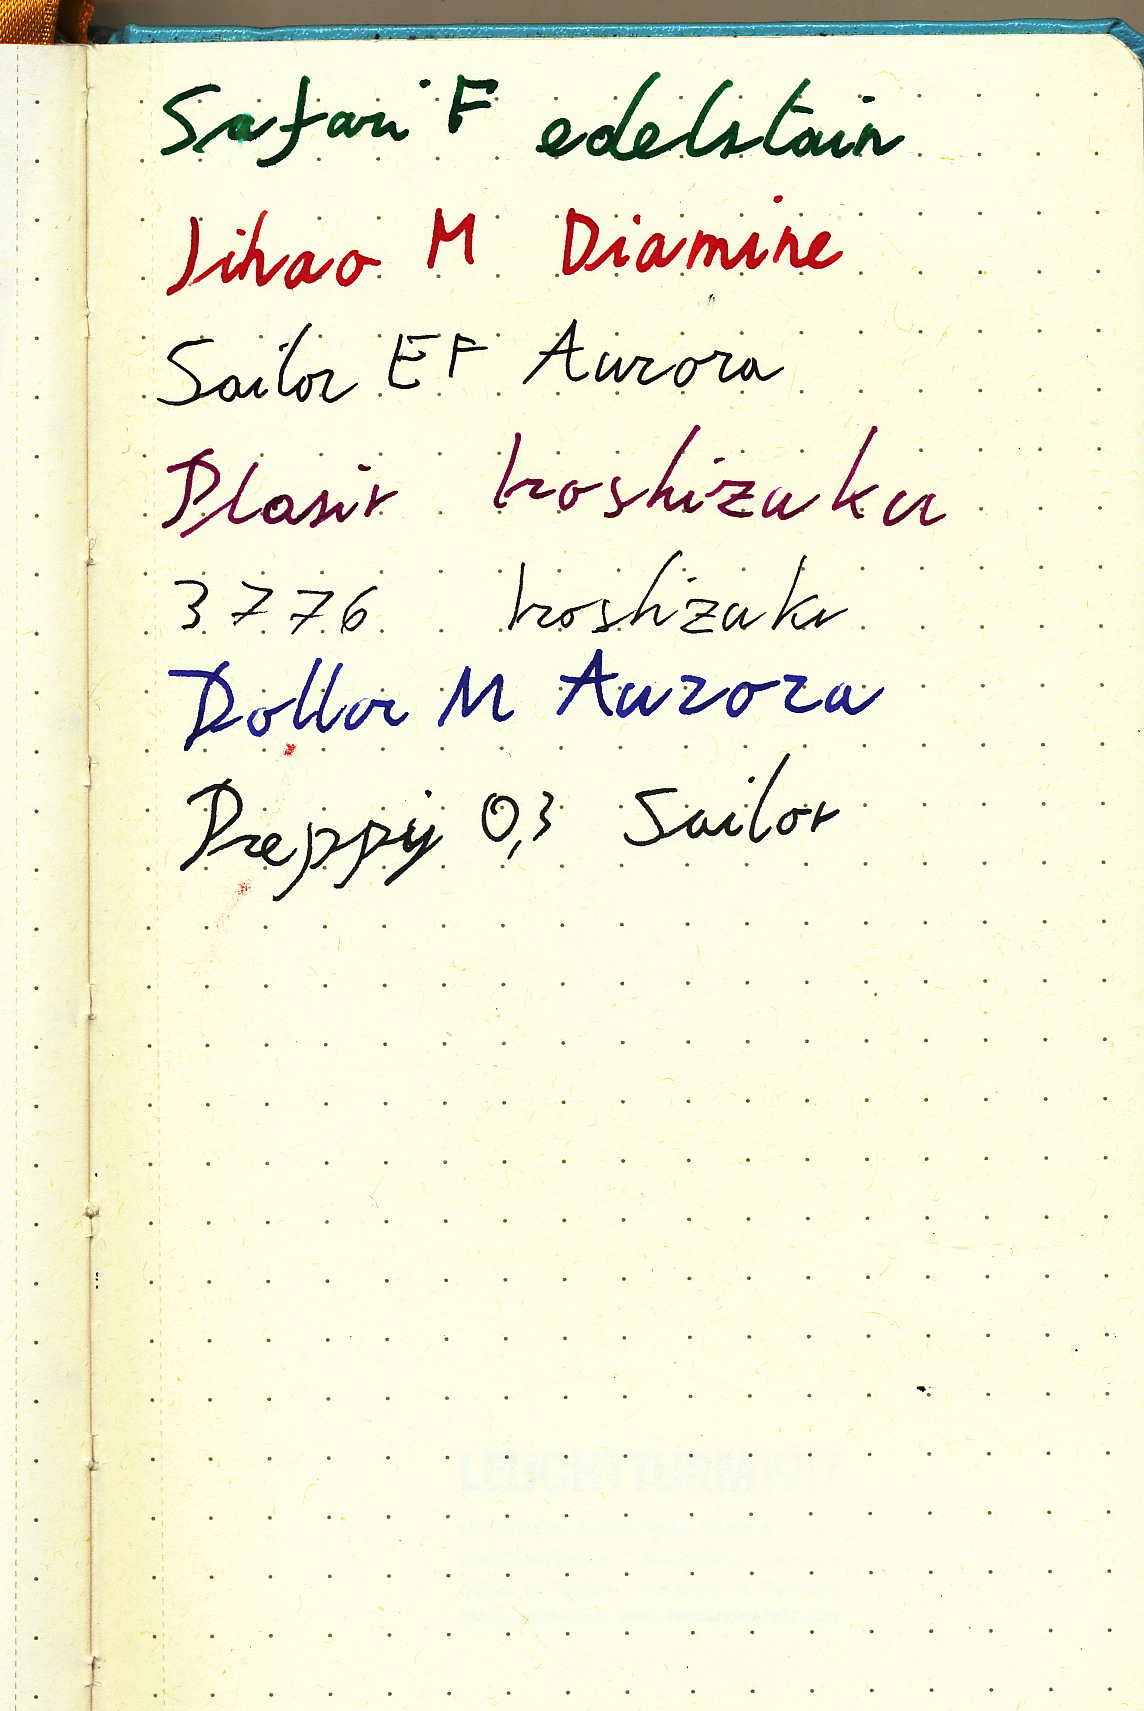 Safari F edelstain
Jihao M Diamine
Sailor EF Aurora
Plasir Iroshizuku
3776 Iroshizuku
Dollar M Aurora
Preppy 0,3 Sailor
LEUCHTTURM1917